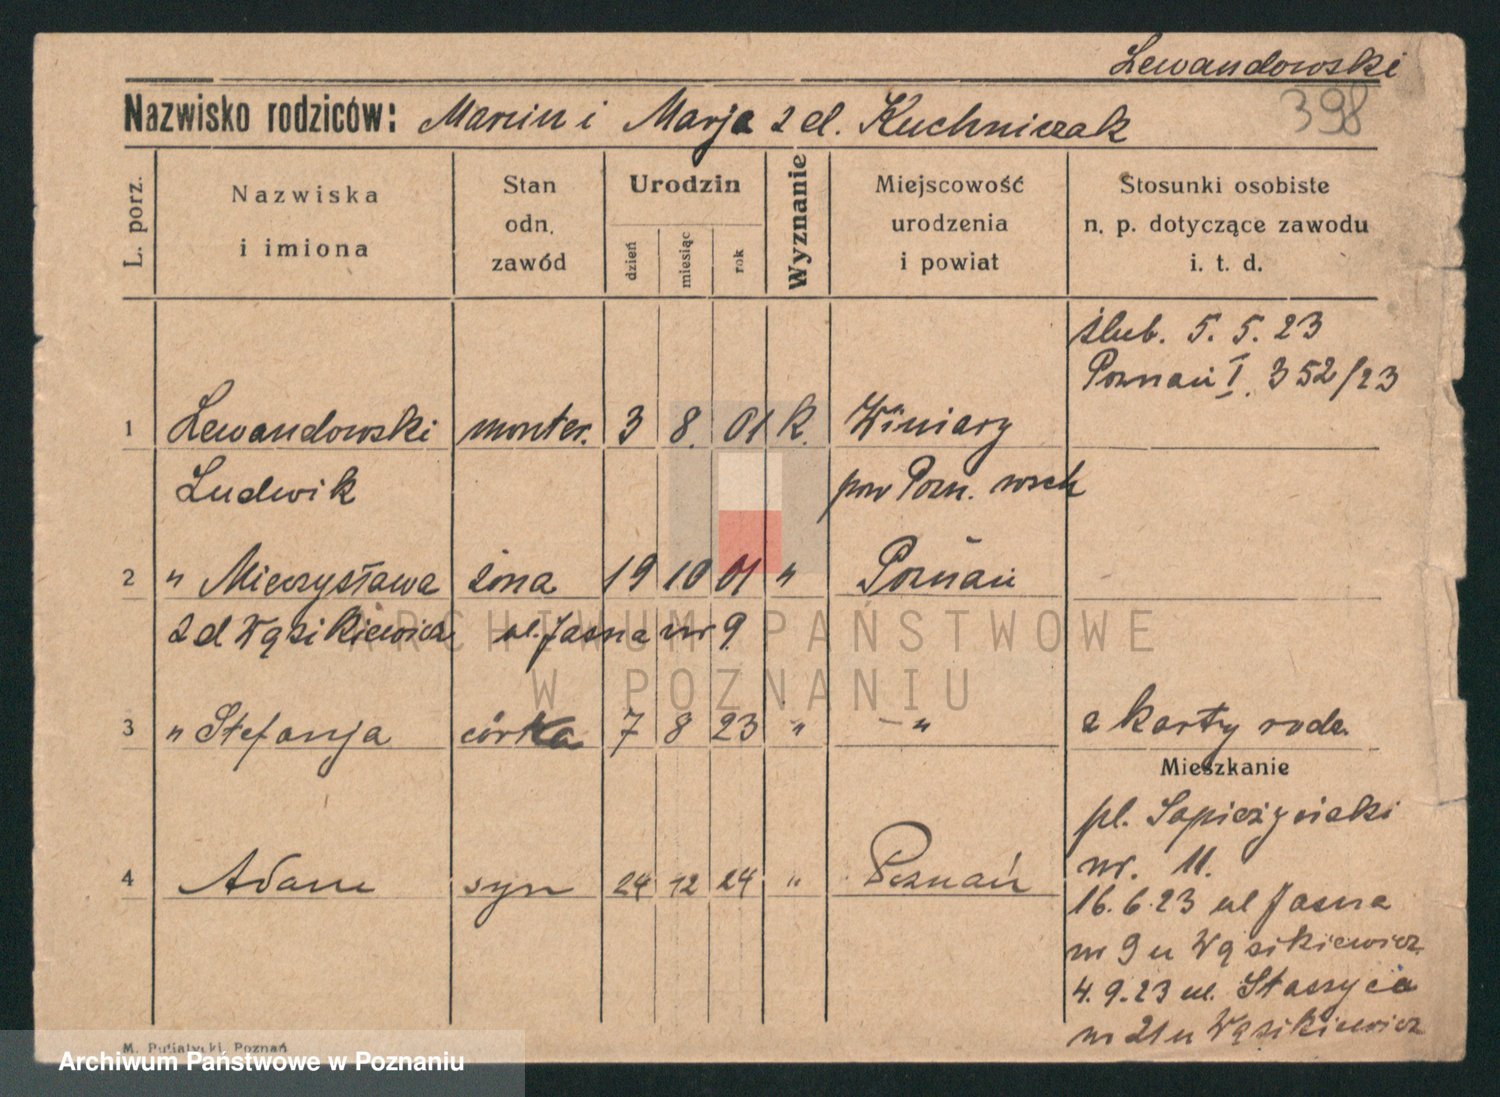 Lewandowski
Nazwisko rodziców: Marcin i Marja z d. Kuchniczak
398
L. porz.
Nazwiska
i imiona
Stan
odn.
zawód
Urodzin
dzień
miesiąc
rok
Wyznanie
Miejscowość
urodzenia
i powiat
Stosunki osobiste
n. p. dotyczące zawodu
i. t. d.
ślub. 5. 5. 23
Poznań I. 352/23
1 Lewandowski monter. 3 8. 01 k. Winiary
Ludwik pow Pozn. wsch
2 " Mieczysława żona 19 10 01 " Poznań
z d Wąsikiewicz ul. Jasna nr 9.
3 " Stefanja córka 7 8 23 " - " z karty rodz.
Mieszkanie
pl. Sapieżyński
nr. 11.
4 Adam syn 24 12 24 " Poznań
16.6.23 ul Jasna
nr 9 u Wąsikiewicz
4.9.23 ul. Staszyca
nr 21 u Wąsikiewicz
M. Putiatycki, Poznań
ARCHIWUM PAŃSTWOWE
W POZNANIU
Archiwum Państwowe w Poznaniu